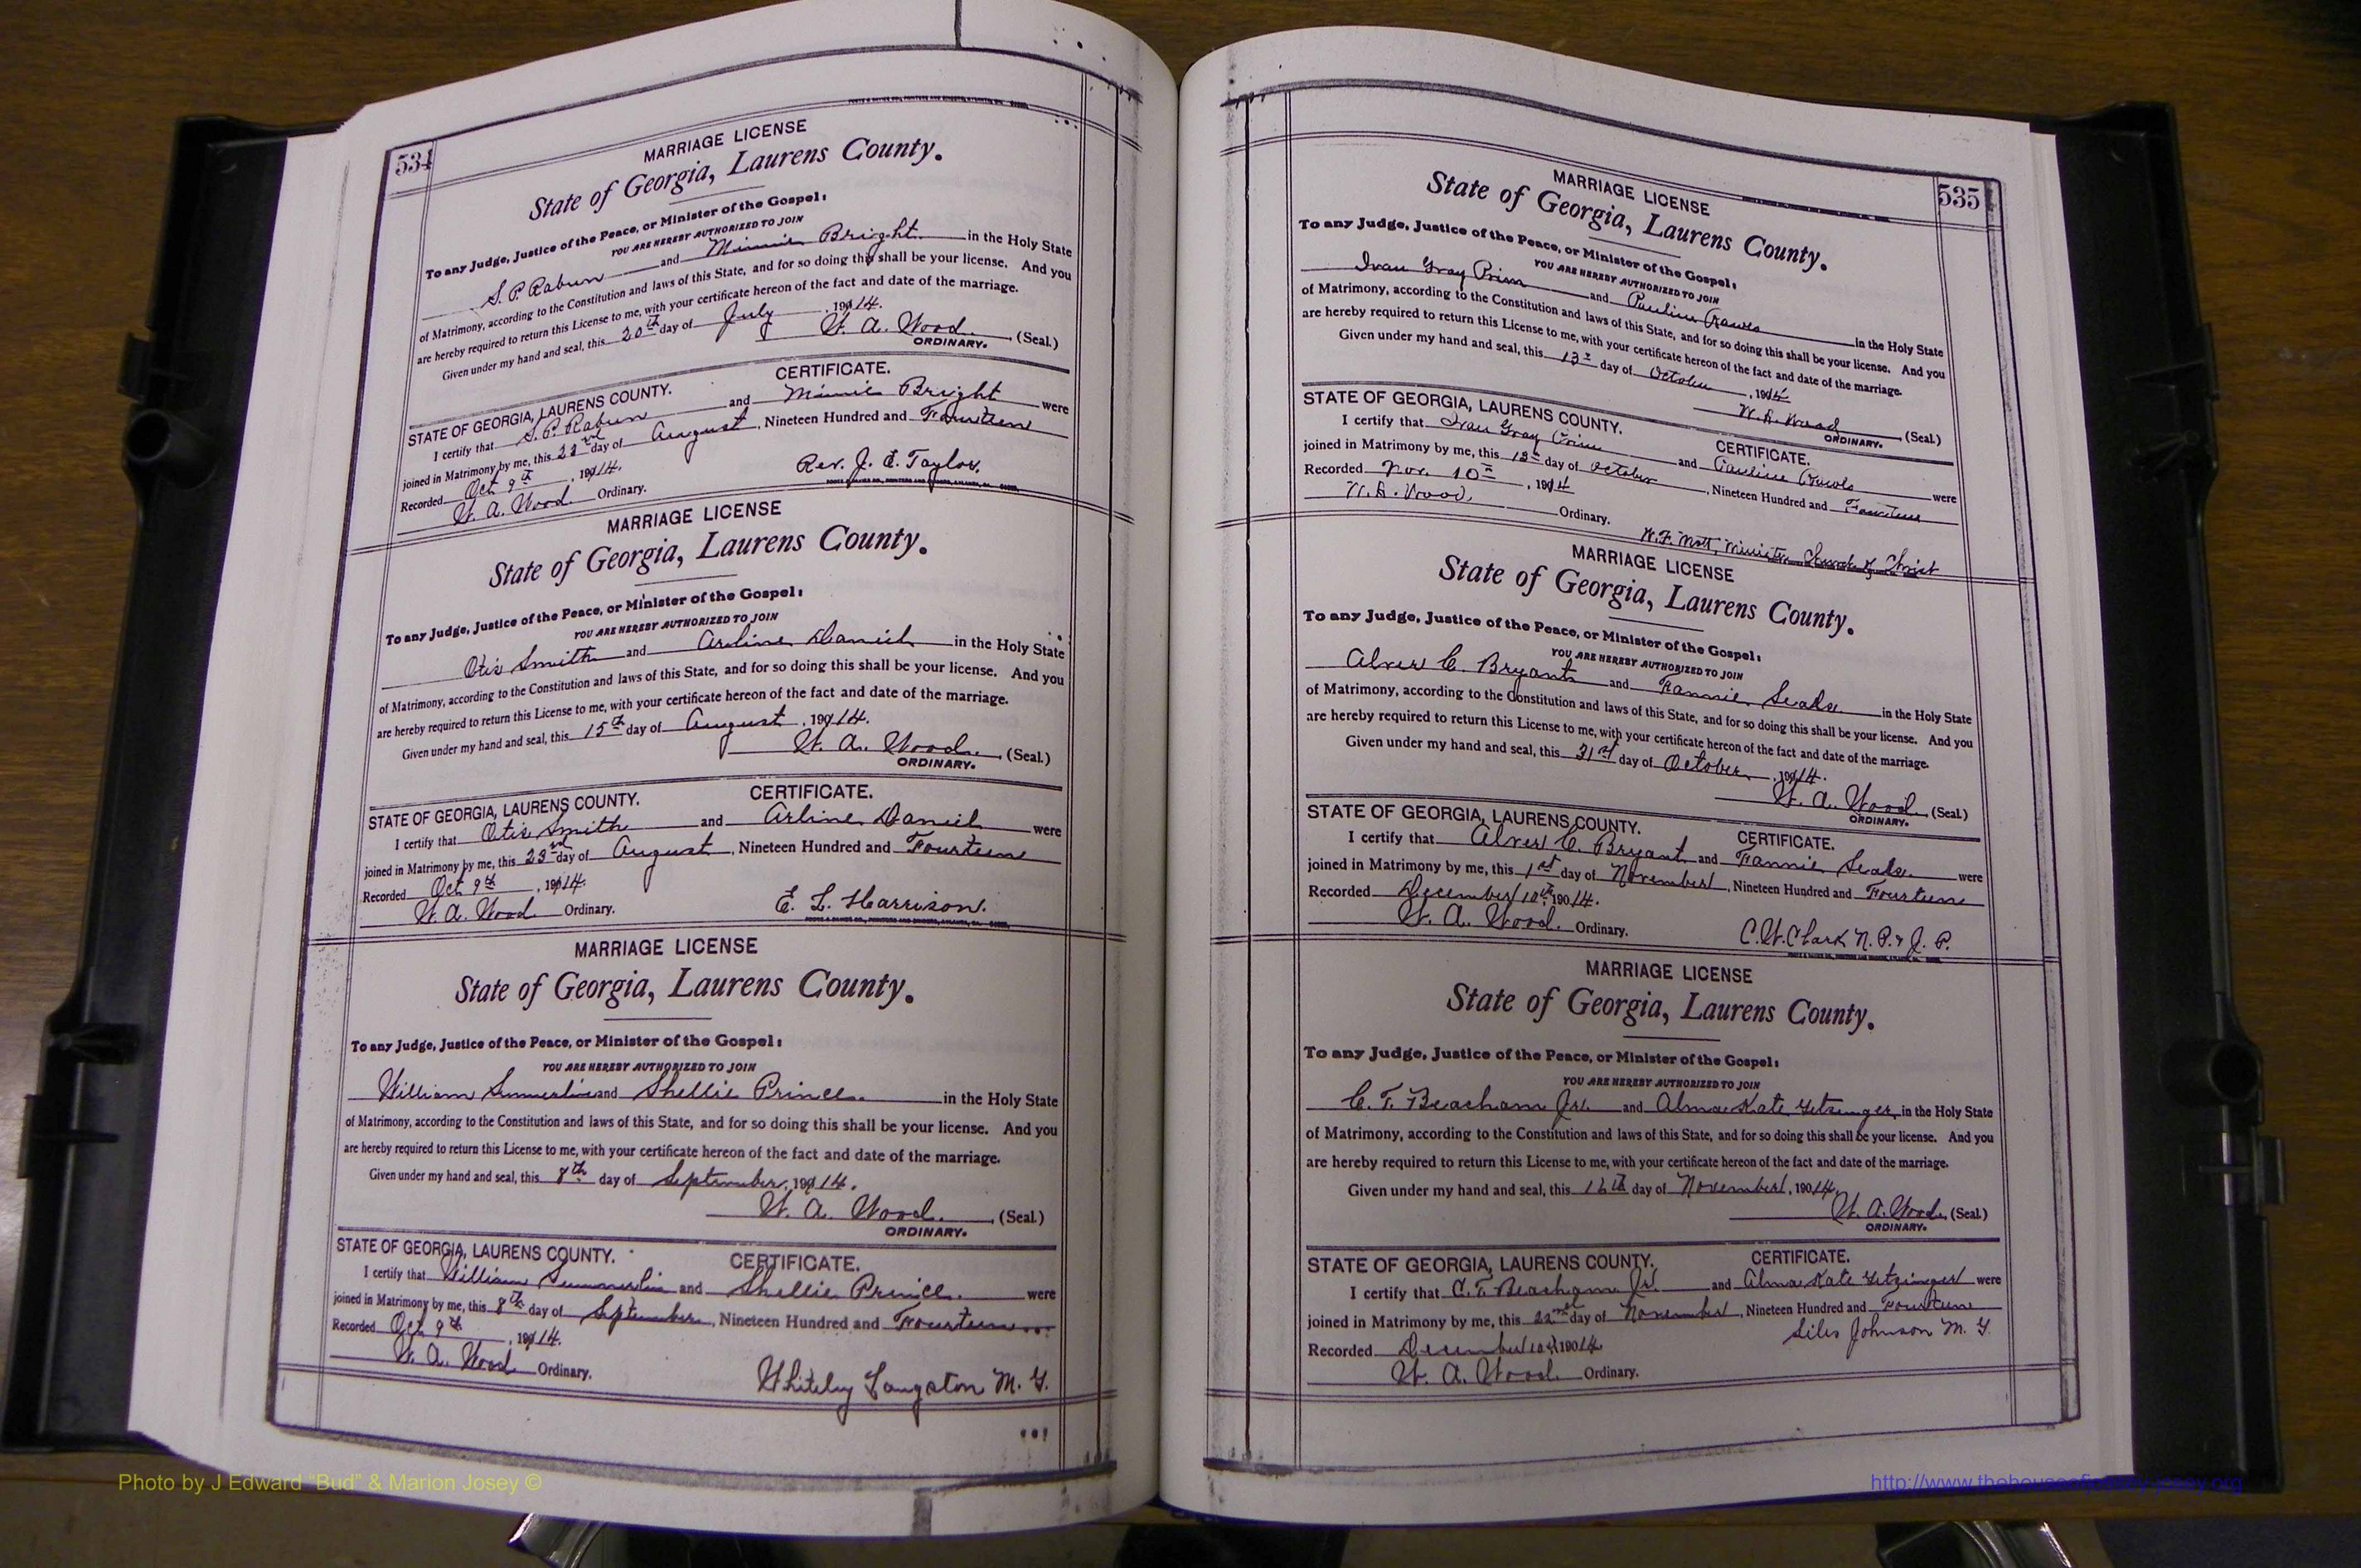 534
MARRIAGE LICENSE
State of Georgia, Laurens County.
To any Judge, Justice of the Peace, or Minister of the Gospel:
YOU ARE HEREBY AUTHORIZED TO JOIN
S. P. Rabun and Minnie Bright in the Holy State
of Matrimony, according to the Constitution and laws of this State, and for so doing this shall be your license. And you
are hereby required to return this License to me, with your certificate hereon of the fact and date of the marriage.
Given under my hand and seal, this 20th day of July, 1914.
W. A. Wood (Seal.)
ORDINARY.
STATE OF GEORGIA, LAURENS COUNTY. CERTIFICATE.
I certify that S. P. Rabun and Minnie Bright were
joined in Matrimony by me, this 23rd day of August, Nineteen Hundred and Fourteen
Recorded Oct 9th, 1914. Rev. J. E. Taylor.
W. A. Wood Ordinary.
MARRIAGE LICENSE
State of Georgia, Laurens County.
To any Judge, Justice of the Peace, or Minister of the Gospel:
YOU ARE HEREBY AUTHORIZED TO JOIN
Otis Smith and Arline Daniel in the Holy State
of Matrimony, according to the Constitution and laws of this State, and for so doing this shall be your license. And you
are hereby required to return this License to me, with your certificate hereon of the fact and date of the marriage.
Given under my hand and seal, this 15th day of August, 1914.
W. A. Wood (Seal.)
ORDINARY.
STATE OF GEORGIA, LAURENS COUNTY. CERTIFICATE.
I certify that Otis Smith and Arline Daniel were
joined in Matrimony by me, this 23rd day of August, Nineteen Hundred and Fourteen
Recorded Oct 9th, 1914.
W. A. Wood Ordinary. E. L. Harrison.
MARRIAGE LICENSE
State of Georgia, Laurens County.
To any Judge, Justice of the Peace, or Minister of the Gospel:
YOU ARE HEREBY AUTHORIZED TO JOIN
William Summerlin and Shellie Prince in the Holy State
of Matrimony, according to the Constitution and laws of this State, and for so doing this shall be your license. And you
are hereby required to return this License to me, with your certificate hereon of the fact and date of the marriage.
Given under my hand and seal, this 8th day of September, 1914.
W. A. Wood. (Seal.)
ORDINARY.
STATE OF GEORGIA, LAURENS COUNTY. CERTIFICATE.
I certify that William Summerlin and Shellie Prince. were
joined in Matrimony by me, this 8th day of September, Nineteen Hundred and Fourteen
Recorded Oct 9th, 1914.
W. A. Wood Ordinary. Whiteley Langston M. G.
535
MARRIAGE LICENSE
State of Georgia, Laurens County.
To any Judge, Justice of the Peace, or Minister of the Gospel:
YOU ARE HEREBY AUTHORIZED TO JOIN
Ivau Gray Prim and Pauline Rawls in the Holy State
of Matrimony, according to the Constitution and laws of this State, and for so doing this shall be your license. And you
are hereby required to return this License to me, with your certificate hereon of the fact and date of the marriage.
Given under my hand and seal, this 13th day of October, 1914
W. A. Wood (Seal.)
ORDINARY.
STATE OF GEORGIA, LAURENS COUNTY. CERTIFICATE.
I certify that Ivau Gray Prim and Pauline Rawls were
joined in Matrimony by me, this 13th day of October, Nineteen Hundred and Fourteen
Recorded Nov. 10th, 1914
W. A. Wood, Ordinary.
W. F. Mott, Minister Church of Christ
MARRIAGE LICENSE
State of Georgia, Laurens County.
To any Judge, Justice of the Peace, or Minister of the Gospel:
YOU ARE HEREBY AUTHORIZED TO JOIN
Alver C. Bryant and Fannie Seals in the Holy State
of Matrimony, according to the Constitution and laws of this State, and for so doing this shall be your license. And you
are hereby required to return this License to me, with your certificate hereon of the fact and date of the marriage.
Given under my hand and seal, this 31st day of October, 1914.
W. A. Wood (Seal.)
ORDINARY.
STATE OF GEORGIA, LAURENS COUNTY. CERTIFICATE.
I certify that Alver C. Bryant and Fannie Seals. were
joined in Matrimony by me, this 1st day of November, Nineteen Hundred and Fourteen
Recorded December 10th, 1914.
W. A. Wood. Ordinary. C. W. Clark N. P. & J. P.
MARRIAGE LICENSE
State of Georgia, Laurens County.
To any Judge, Justice of the Peace, or Minister of the Gospel:
YOU ARE HEREBY AUTHORIZED TO JOIN
C. T. Beacham Jr. and Alma Kate Getzinger in the Holy State
of Matrimony, according to the Constitution and laws of this State, and for so doing this shall be your license. And you
are hereby required to return this License to me, with your certificate hereon of the fact and date of the marriage.
Given under my hand and seal, this 16th day of November, 19014.
W. A. Wood. (Seal.)
ORDINARY.
STATE OF GEORGIA, LAURENS COUNTY. CERTIFICATE.
I certify that C. T. Beacham Jr. and Alma Kate Getzinger were
joined in Matrimony by me, this 22nd day of November, Nineteen Hundred and Fourteen
Siles Johnson M. G.
Recorded December 10th 19014.
W. A. Wood. Ordinary.
Photo by J Edward “Bud” & Marion Josey ©